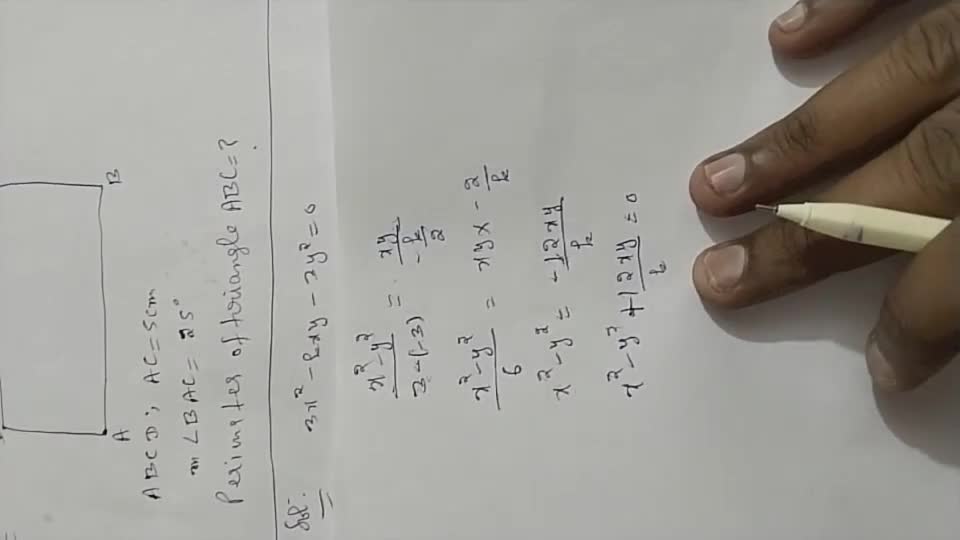 B
A
ABCD; AC=5cm
∠BAC= 25°
Perimeter of triangle ABC=?
Sol:- 3x² - kxy - 3y² = 0
(x² - y²)/(3-(-3)) = xy/(-k/2)
(x² - y²)/6 = xy x - 2/k
x² - y² = -12xy/k
x² - y² + 12xy/k = 0